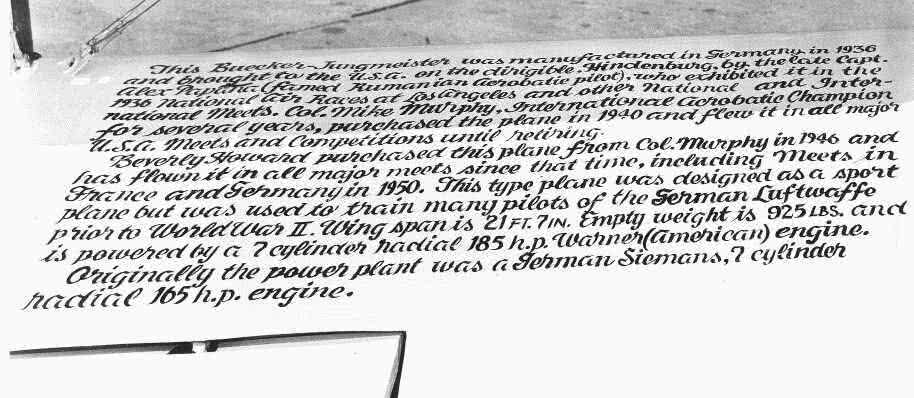 This Buecker-Jungmeister was manufactured in Germany in 1936
and brought to the U.S.A. on the dirigible, Hindenburg, by the late Capt.
Alex Papana (famed Rumanian Aerobatic pilot), who exhibited it in the
1936 National Air Races at Los Angeles and other National and Inter-
national Meets. Col. Mike Murphy, International Aerobatic Champion
for several years, purchased the plane in 1940 and flew it in all major
U.S.A. Meets and Competitions until retiring.
Beverly Howard purchased this plane from Col. Murphy in 1946 and
has flown it in all major meets since that time, including Meets in
France and Germany in 1950. This type plane was designed as a sport
plane but was used to train many pilots of the German Luftwaffe
prior to World War II. Wing span is 21 FT. 7 IN. Empty weight is 925 LBS. and
is powered by a 7 cylinder radial 185 h.p. Warner (American) engine.
Originally the power plant was a German Siemans, 7 cylinder
radial 165 h.p. engine.